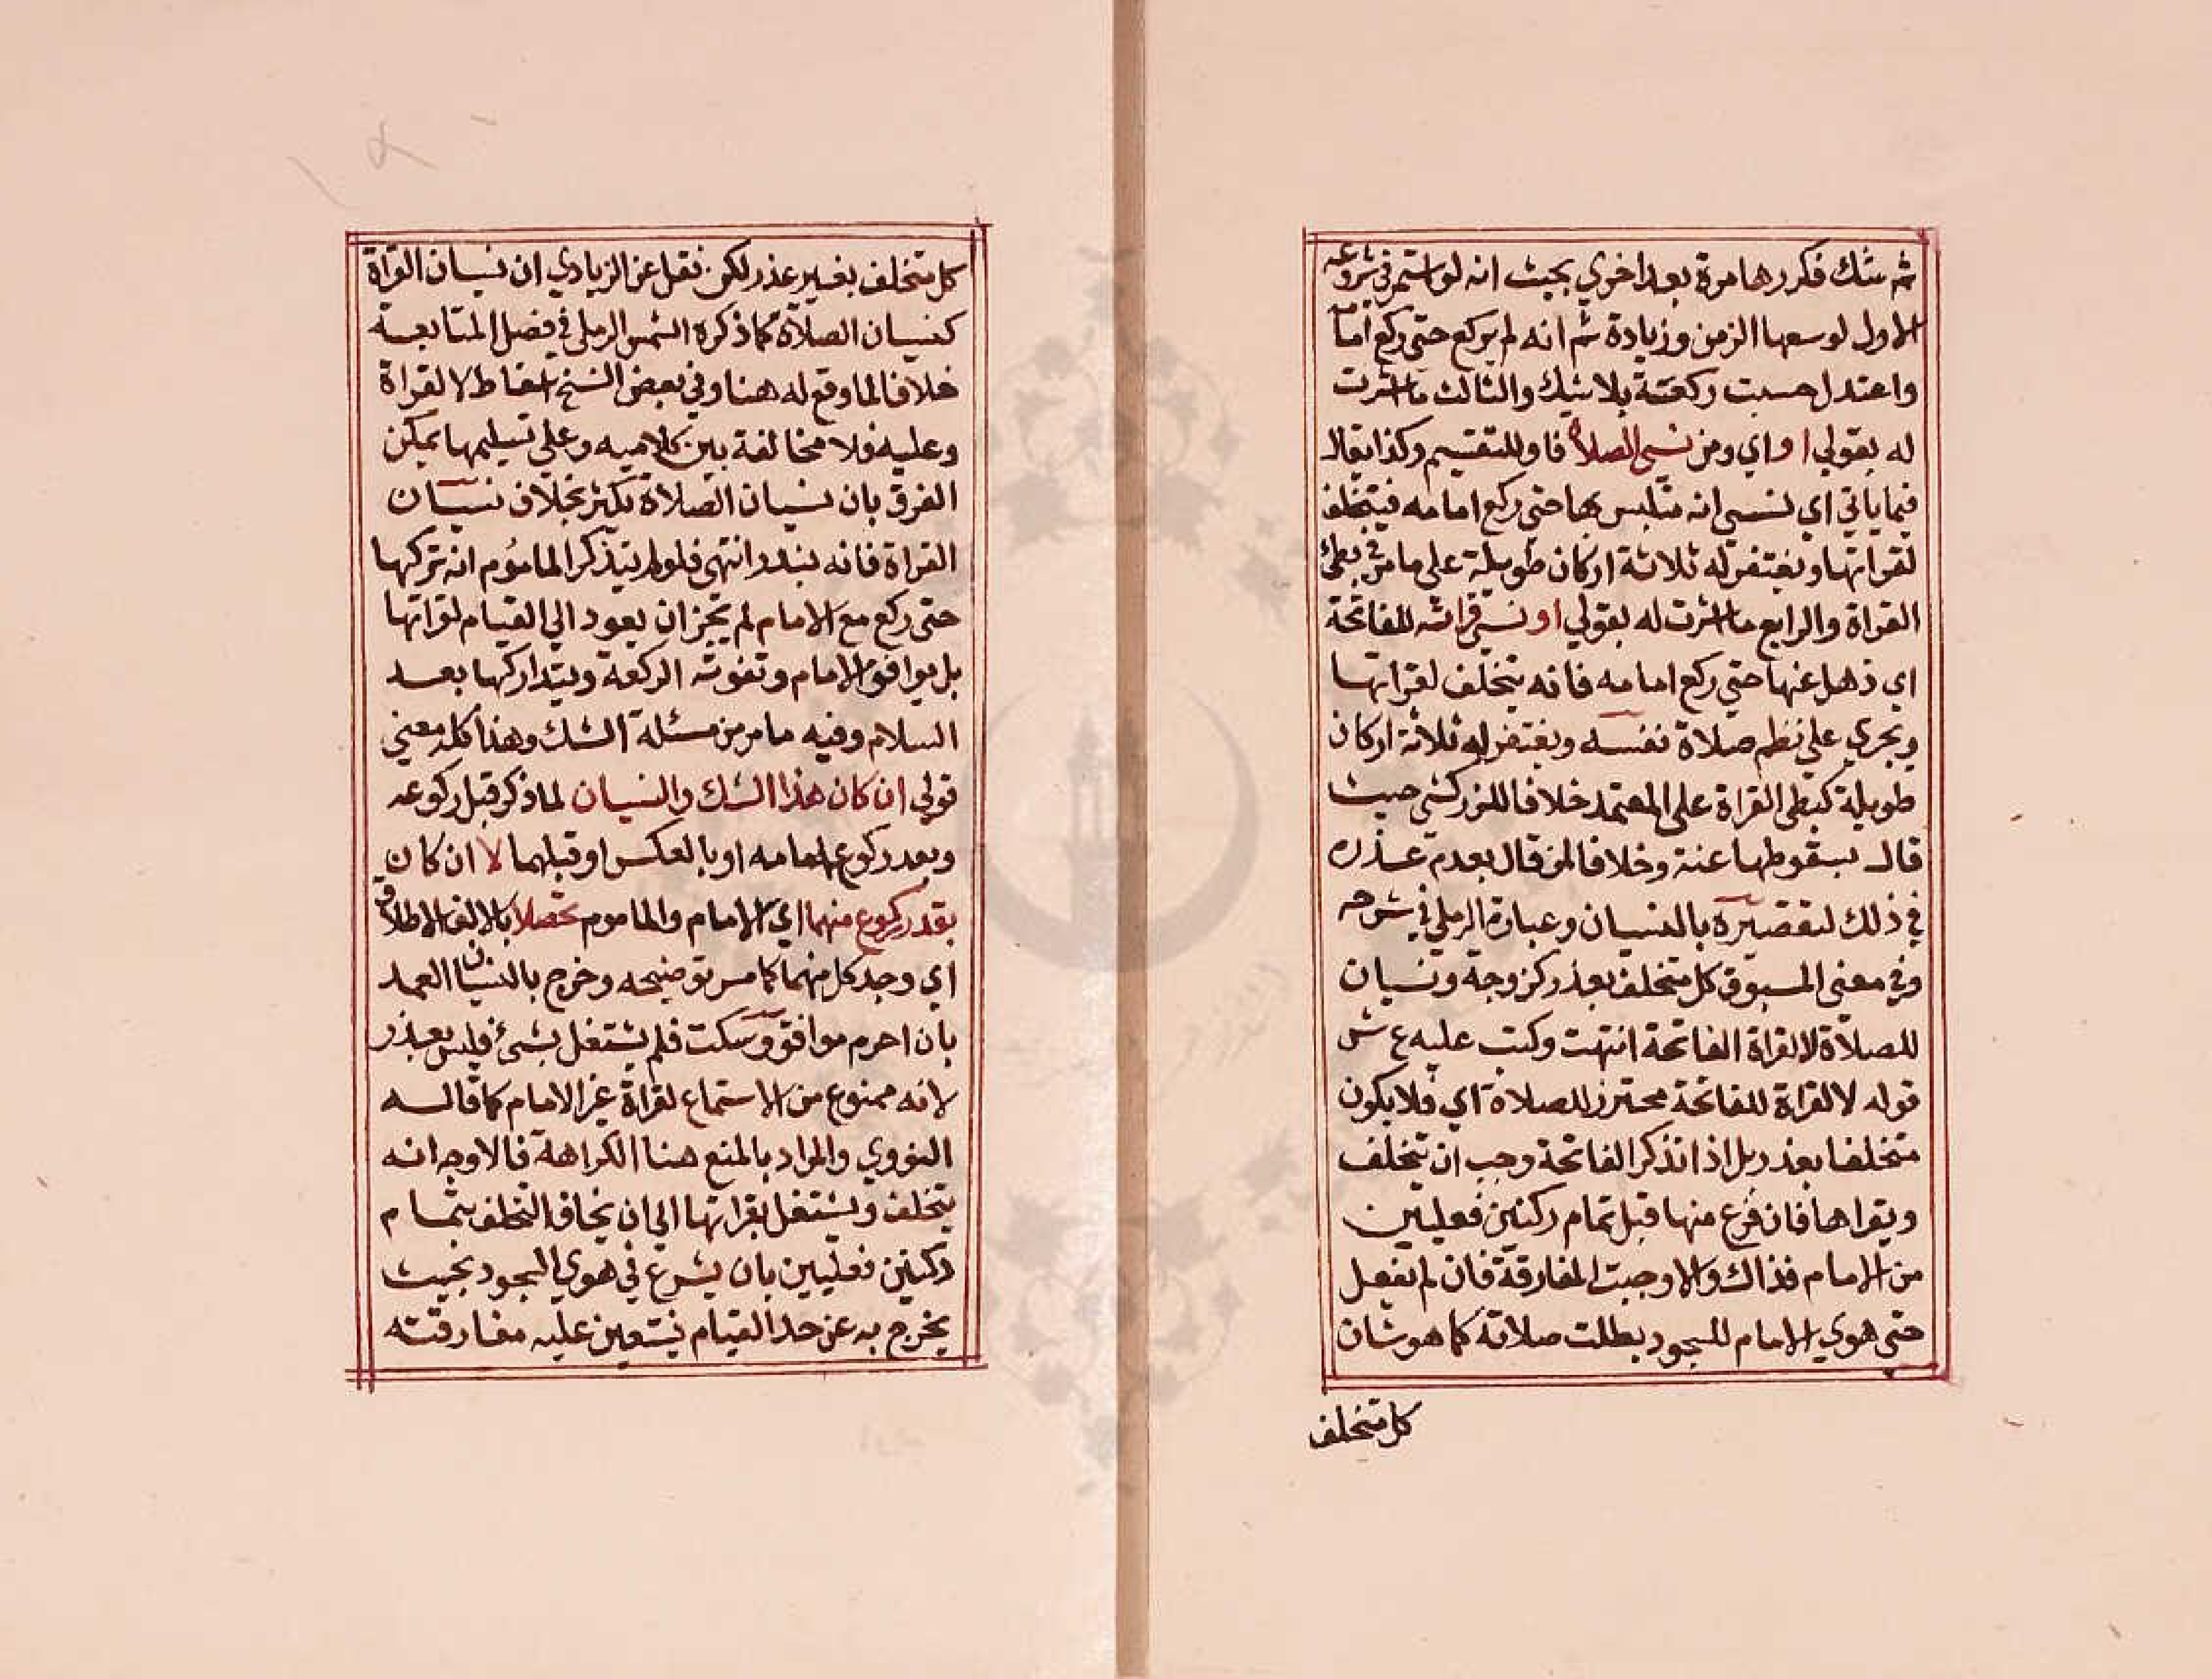 ثم شك فكررها مرة بعد اخري بحيث انه لو استمر في شروعه
الاول لوسعها الزمن وزيادة ثم انه لم يركع حتي ركع امامه
واعتدل حسبت ركعته بلا شك والثالث ما اشرت
له بقولي او اي ومن نسي الصلاة فاو للتقسيم وكذا يقال
فيما ياتي اي نسي انه متلبس بها حتي ركع امامه فيتخلف
لقراتها ويغتفر له ثلاثة اركان طويلة علي ما مر في بطئ
القراة والرابع ما اشرت له بقولي او نسي قراته للفاتحة
اي ذهل عنها حتي ركع امامه فانه يتخلف لقراتها
ويجري علي نظم صلاة نفسه ويغتفر له ثلاثة اركان
طويلة كبطئ القراة علي المعتمد خلافا للزركشي حيث
قال بسقوطها عنه وخلافا لمن قال بعدم عذره
في ذلك لتقصيره بالنسيان وعبارة الرملي في شرحه
وفي معني المسبوق كل متخلف بعذر كزوجة ونسيان
للصلاة لا لقراة الفاتحة انتهت وكتب عليه ع ش
قوله لا لقراة للفاتحة محترز للصلاة اي فلا يكون
متخلفا بعذر بل اذا تذكر الفاتحة وجب ان يتخلف
ويقراها فان فرغ منها قبل تمام ركنين فعليين
من الامام فذاك والا وجبت المفارقة فان لم يفعل
حتي هوي الامام للسجود بطلت صلاته كما هو شان
كل متخلف
كل متخلف بغير عذر لكن نقل عن الزيادي ان نسيان القراة
كنسيان الصلاة كما ذكره الشمس الرملي في فصل المتابعة
خلافا لما وقع له هنا وفي بعض النسخ اسقاط لا لقراة
وعليه فلا مخالفة بين كلاميه وعلي تسليمها يمكن
الفرق بان نسيان الصلاة يكثر بخلاف نسيان
القراة فانه يندر انتهي فلو لم يتذكر الماموم انه تركها
حتي ركع مع الامام لم يجز ان يعود الي القيام لقراتها
بل يوافق الامام وتفوته الركعة ويتداركها بعد
السلام وفيه ما مر من مسئلة الشك وهذا كله معني
قولي ان كان هذا الشك والنسيان لما ذكر قبل ركوعه
وبعد ركوع امامه او بالعكس او قبلهما لا ان كان
بعد ركوع منهما اي الامام والماموم تحصلا بالالف الاطلاق
اي وجد كل منهما كما مر توضيحه وخرج بالنسيان العمد
بان احرم موافق وسكت فلم يشتغل بشئ فليس بعذر
لانه ممنوع من الاستماع لقراة غير الامام كما قاله
النووي والمراد بالمنع هنا الكراهة فالاوجه انه
يتخلف ويشتغل بقراتها الي ان يخاف التخلف بتمام
ركنين فعليين بان يشرع في هوي السجود بحيث
يخرج به عن حد القيام فيتعين عليه مفارقته